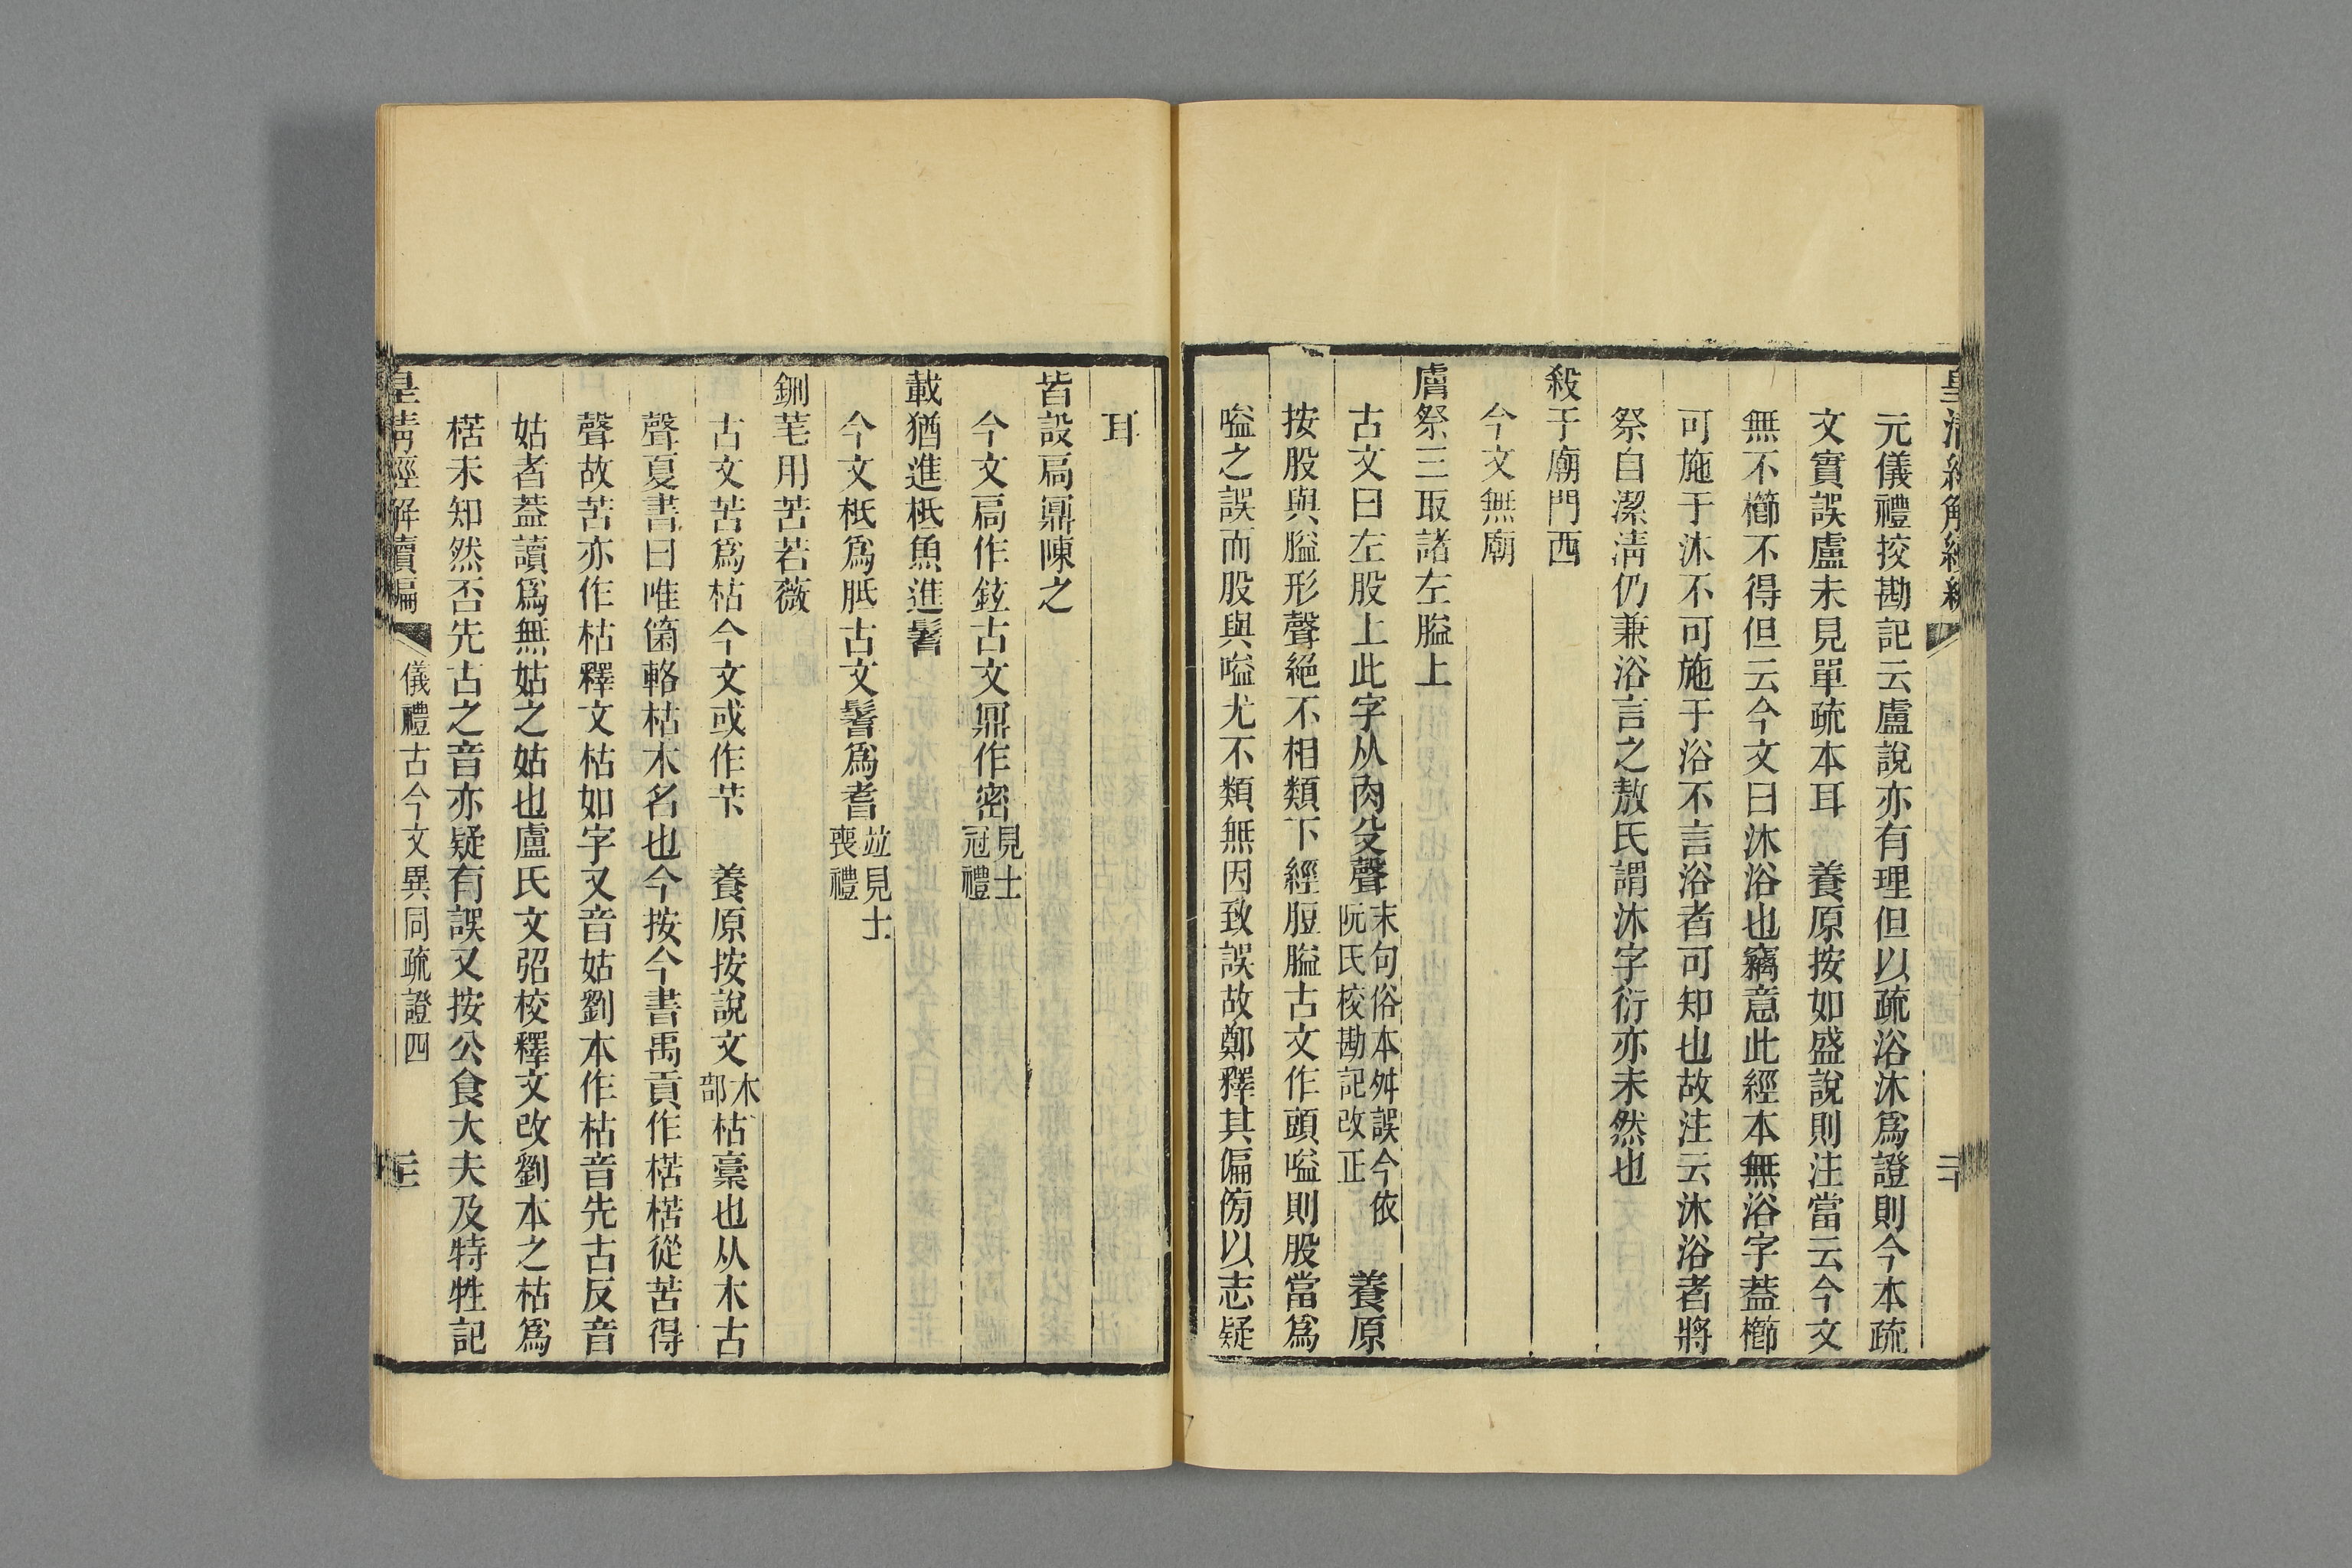 元儀禮挍勘記云盧說亦有理但以疏浴沐爲證則今本疏
文實誤盧未見單疏本耳　養原按如盛說則注當云今文
無不櫛不得但云今文曰沐浴也竊意此經本無浴字葢櫛
可施于沐不可施于浴不言浴者可知也故注云沐浴者將
祭自潔淸仍兼浴言之敖氏謂沐字衍亦未然也
殺于廟門西
今文無廟
膚祭三取諸左膉上
古文曰左股上此字从肉殳聲末句俗本舛誤今依阮氏校勘記改正　養原
按股與膉形聲絕不相類下經脰膉古文作頭嗌則股當爲
嗌之誤而股與嗌尤不類無因致誤故鄭釋其偏傍以志疑
耳
皆設扃鼏陳之
今文扃作鉉古文鼏作密見士冠禮
載猶進柢魚進鬐
今文柢爲胝古文鬐爲耆竝見士喪禮
鉶芼用苦若薇
古文苦爲枯今文或作芐　養原按說文木部枯槀也从木古
聲夏書曰唯箘輅枯木名也今按今書禹貢作楛楛從苦得
聲故苦亦作枯釋文枯如字又音姑劉本作枯音先古反音
姑者葢讀爲無姑之姑也盧氏文弨校釋文改劉本之枯爲
楛未知然否先古之音亦疑有誤又按公食大夫及特牲記
皇淸經解續編
儀禮古今文異同疏證四